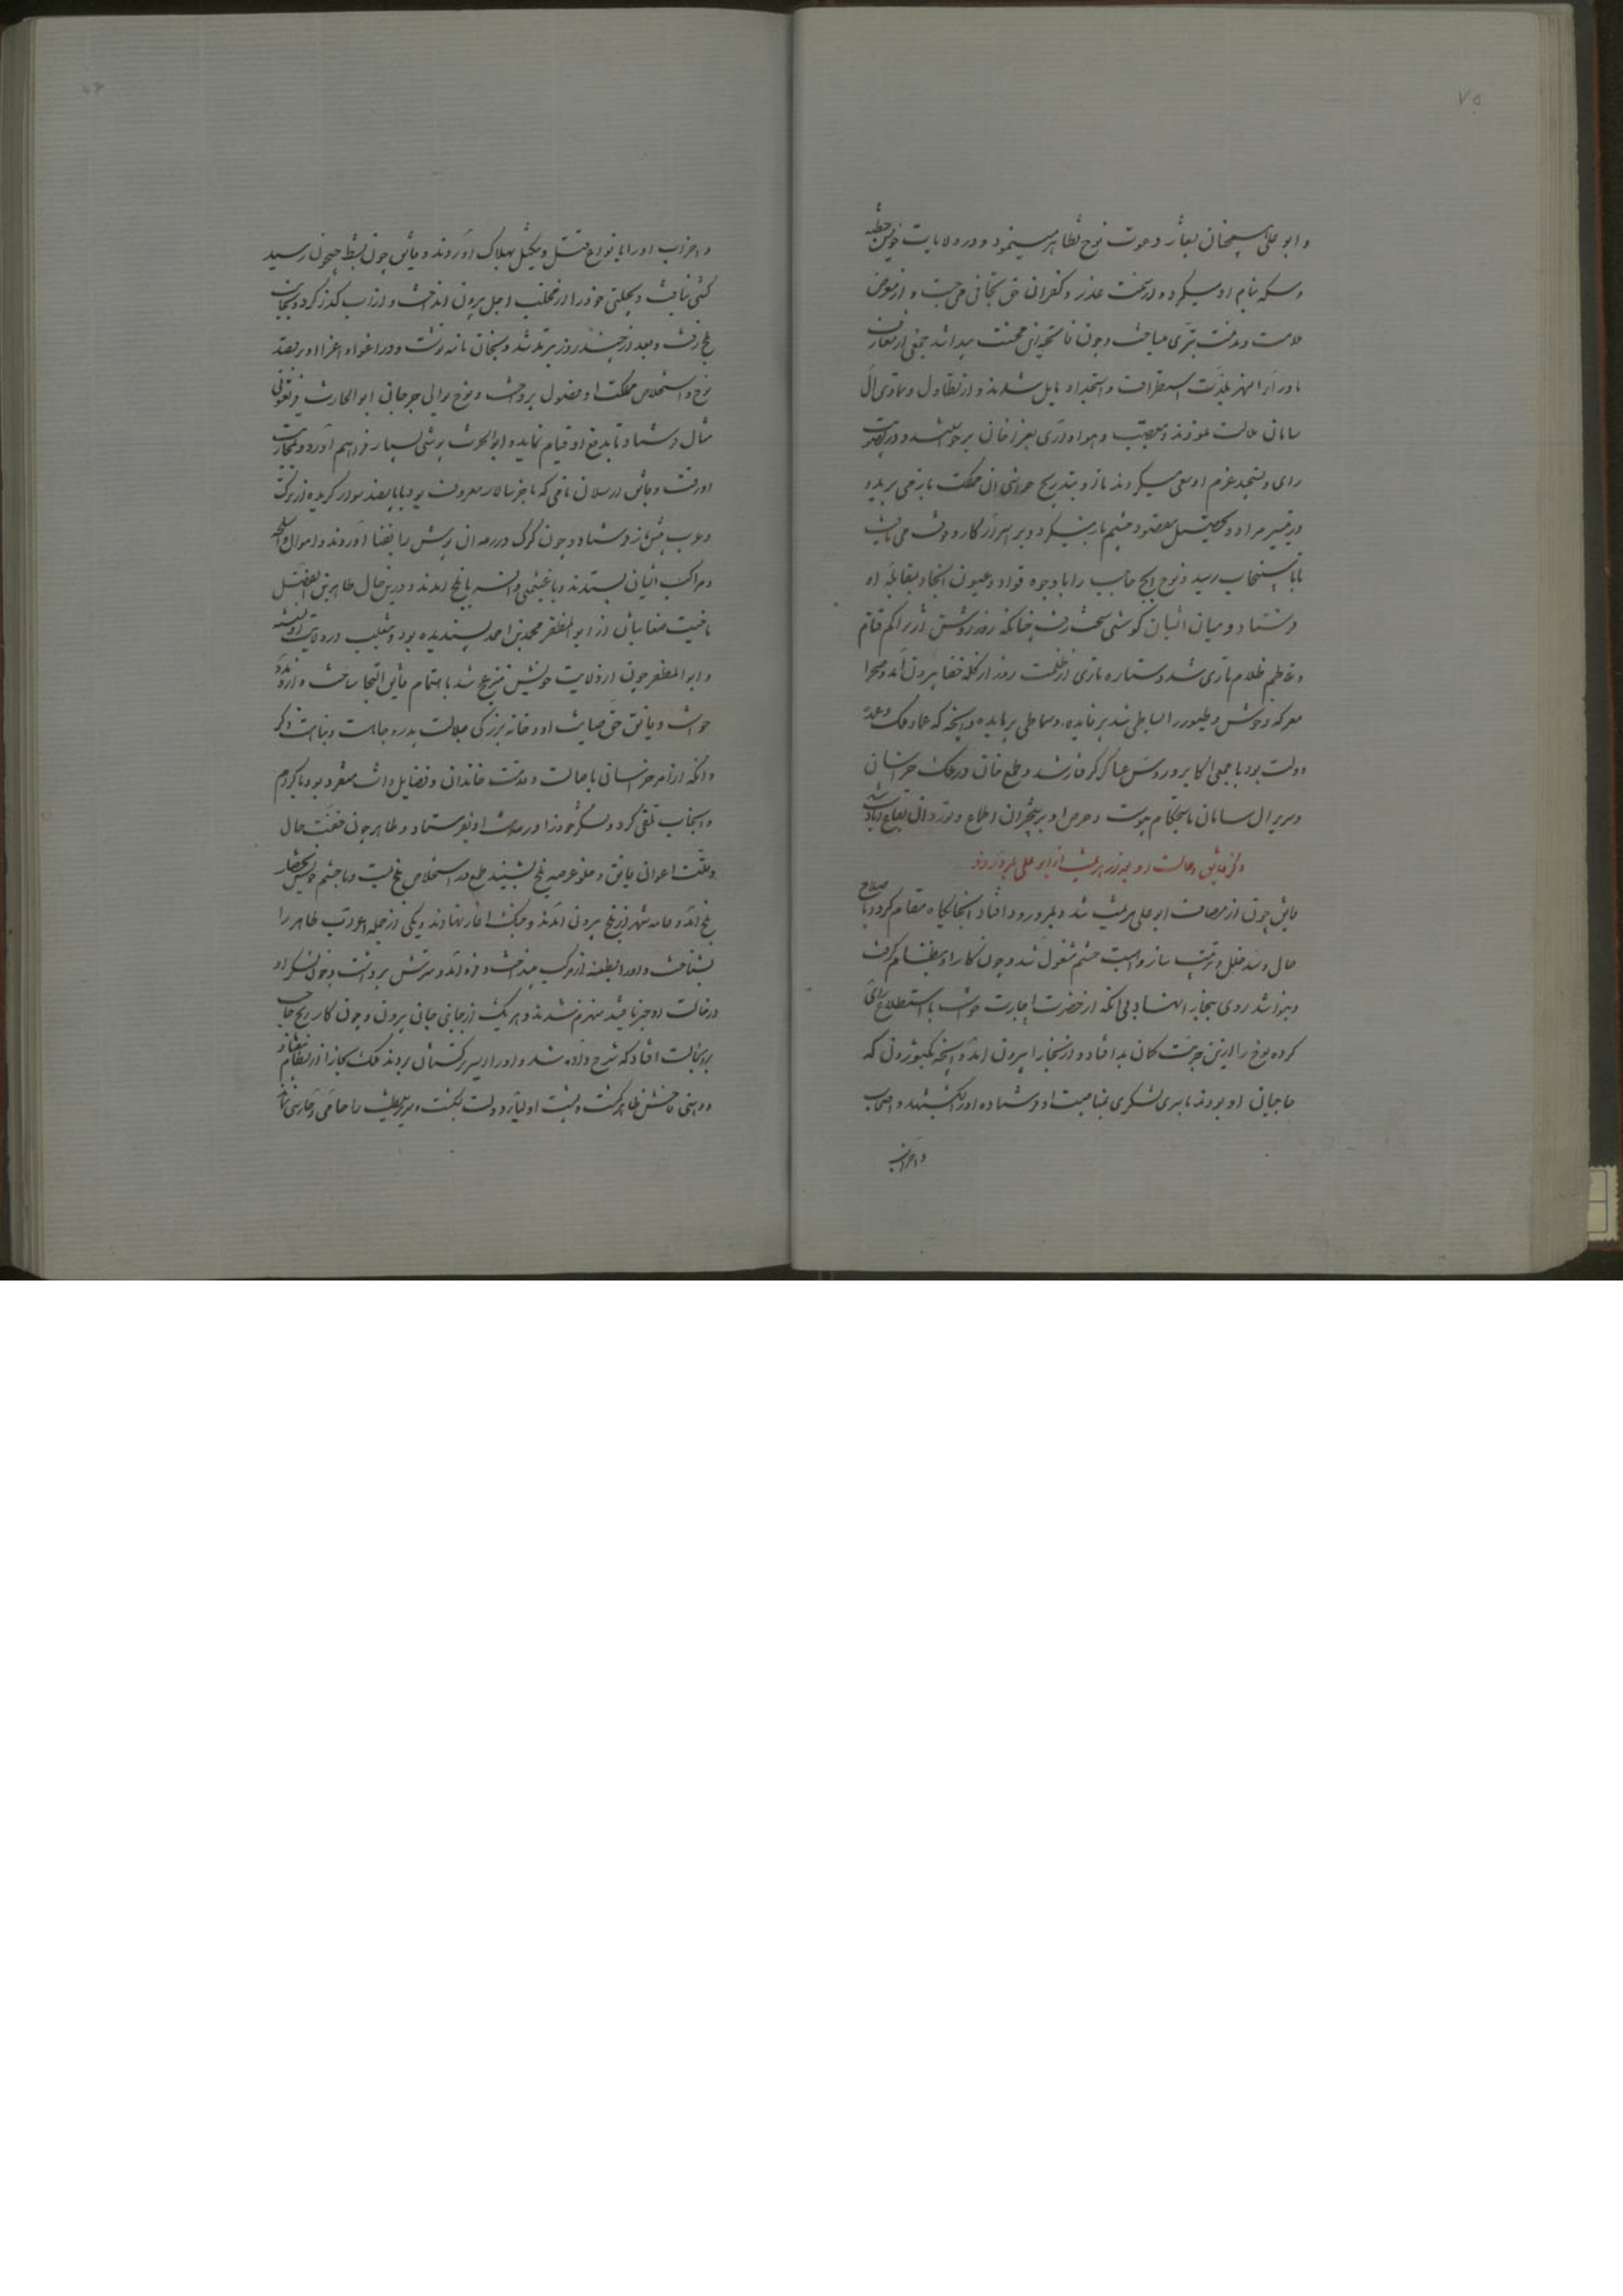 ۷۵
و ابو علی سیمجان بعار دعوت نوح تظاهر مینمود و در ولایت خویش خطبه
و سکه بنام او میکرد و از سمت غدر و کفران حق تجافی می جست و از
ملامت و مذمت تبری میساخت و چون
ماوراء النهر بلذت استطراف و استجداد مایل شدند و از تطاول و تمادی آل
سامان ملالت نمودند و هواداری بغراخان بر خواستند و در تقویت
رای و تشحید عزم او سعی میکردند تا او بتدریج حواشی آن مملکت باز می برید و
در تیسیر مراد و تحصیل مقصود چشم باز میکرد و بر سر آن کار وقوف می یافت
تا باسپیجاب رسید و نوح ایج حاجب را با وجوه قواد و عیون انجاد بمقابله او
فرستاد و میان ایشان کوششی سخت رفت چنانکه روز روشن از تراکم قتام
و تلاطم ظلام تاری شد و ستاره تازی از ظلمت روز از کله خفا بیرون آمد و صحرا
معرکه وحوش و طیور را بساطی شد پر فایده و سماطی پر مایده و ایج که عماد ملک و عده
دولت بود با جمعی اکابر و روس عساکر گرفتار شد و طمع خان در ملک خراسان
و سریر آل سامان باستحکام پیوست و حرص او بر تیخران اطلاع و نورد آن بقاع زیادت شد
ذکر فایق و حالت او بعد از هزیمت از ابو علی بمرورود
فایق چون از مصاف ابو علی هزیمت شد و بمرورود افتاد آنجایگاه مقام کرد و با صلاح
حال و سد خلل و ترتیب ساز و اهبت حشم مشغول شد و چون کار او نظام گرفت
روی ببخارا نهاد بی آنکه از حضرت اجازت خواست یا استطلاع رای
کرده نوح را ازین جرئت گمان بد افتاد و از بخارا بیرون آمد و ایج و بکتوزون که
حاجبان او بودند با سری لشکری بمناصبت او فرستاد و او را بکشتند و اصحاب
و احزاب
۷۶
و احزاب او را بانواع قتل و تنکیل بهلاک آوردند و فایق چون بشط جیحون رسید
کشتی نیافت و بحیلتی خود را از مخلب اجل بیرون انداخت و از آب گذر کرد و بجانب
بلخ رفت و بعد از چند روز بترمد شد و بخان نامه نوشت و در اغواء و اغراء او بر قصد
نوح و استخلاص مملکت او فصول پرداخت و نوح بوالی جرجانی ابو الحارث فریغونی
مثال فرستاد تا بدفع او قیام نماید و ابو الحرث لشکری بسیار فراهم آورد و بمحاربت
او رفت و فایق ارسلان نامی که باخر سالار معروف بود با پانصد سوار گزیده از ترک
و عرب پیش باز فرستاد و چون گرگ در رمه آن لشکر را بفنا آوردند و اموال و اسلحه
و مراکب ایشان بستدند و با غنیمتی وافر باز بلخ آمدند و درین حال طاهر بن الفضل
ناحیت صغانیان از ابو المظفر محمد بن احمد بستدیده بود و متغلب در ولایت او نشسته
و ابو المظفر چون از ولایت خویش منزعج شد باهتمام فایق التجا ساخت و از او مدد
خواست و فایق حق صیانت او و خانه بزرگی و جلالت پدر و وجاهت و نباهت ذکر
و آنکه از امراء خراسان باصالت و قدمت خاندان و فضایل ذات متفرد بود باکرام
و ایجاب تلقی کرد و لشکر خود را در صحبت او بفرستاد و طاهر چون خفت حال
و قلت اعوان فایق و خلو عرصه بلخ بشنید طمع در استخلاص بلخ بست و با حشم خویش بحصار
بلخ آمد و عامه شهر از بلخ بیرون آمدند و جنگ آغاز نهادند و یکی از جمله اعراب طاهر را
بشناخت و او را بطعنه از مرکب بینداخت و فرود آمد و سرش برداشت و چون لشکر او
از حالت او خبر یافتند منهزم شدند و هر یک از جانبی جان بیرون و چون کار ایج حاجب
بر آنحالت افتاد که شرح داده شد و او را اسیر بترکستان بردند ملک بخارا از نظام بیفتاد و
وهنی فاحش ظاهر گشت و پشت اولیاء دولت بشکست و سریر مملکت را حامی و حارسی نماند